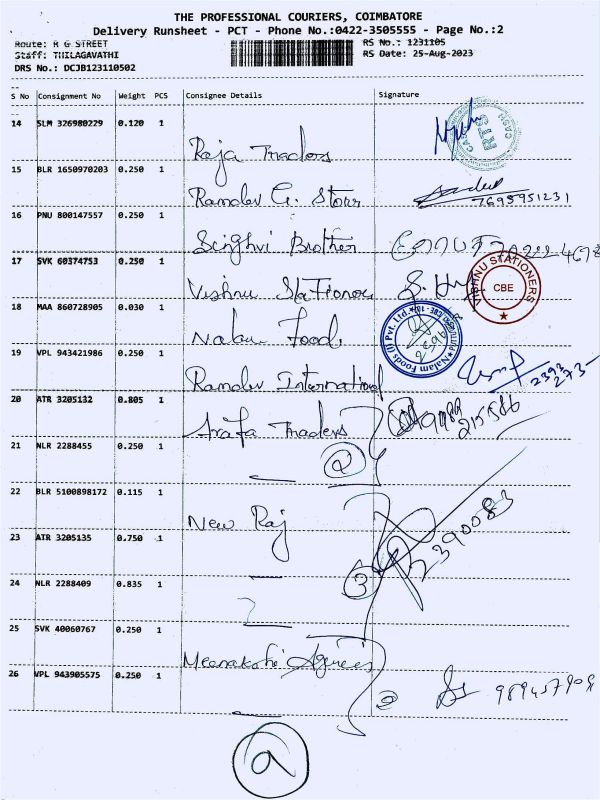 THE PROFESSIONAL COURIERS, COIMBATORE
Delivery Runsheet - PCT - Phone No.:0422-3505555 - Page No.:2
Route: R G STREET
Staff: THILAGAVATHI
DRS No.: DCJB123110502
RS No.: 1231105
RS Date: 25-Aug-2023
S No Consignment No Weight PCS Consignee Details Signature
14 SLM 326980229 0.120 1 Raja Traders
CASH RTS
15 BLR 1650970203 0.250 1 Ramdev G. Store
7695951231
16 PNU 800147557 0.250 1 Singhvi Brother
17 SVK 60374753 0.250 1 Vishnu Stationors
VISHNU STATIONERS CBE
18 MAA 860728905 0.030 1 Nalam Foods
Nalam Foods (I) Pvt. Ltd.
19 VPL 943421986 0.250 1 Ramdev International
2393
273
20 ATR 3205132 0.805 1 Arafa Traders
21 NLR 2288455 0.250 1
2
22 BLR 5100898172 0.115 1 New Raj
2390083
23 ATR 3205135 0.750 1
3
24 NLR 2288409 0.835 1
25 SVK 40060767 0.250 1 Meenakshi Agencies
26 VPL 943905575 0.250 1
2
9